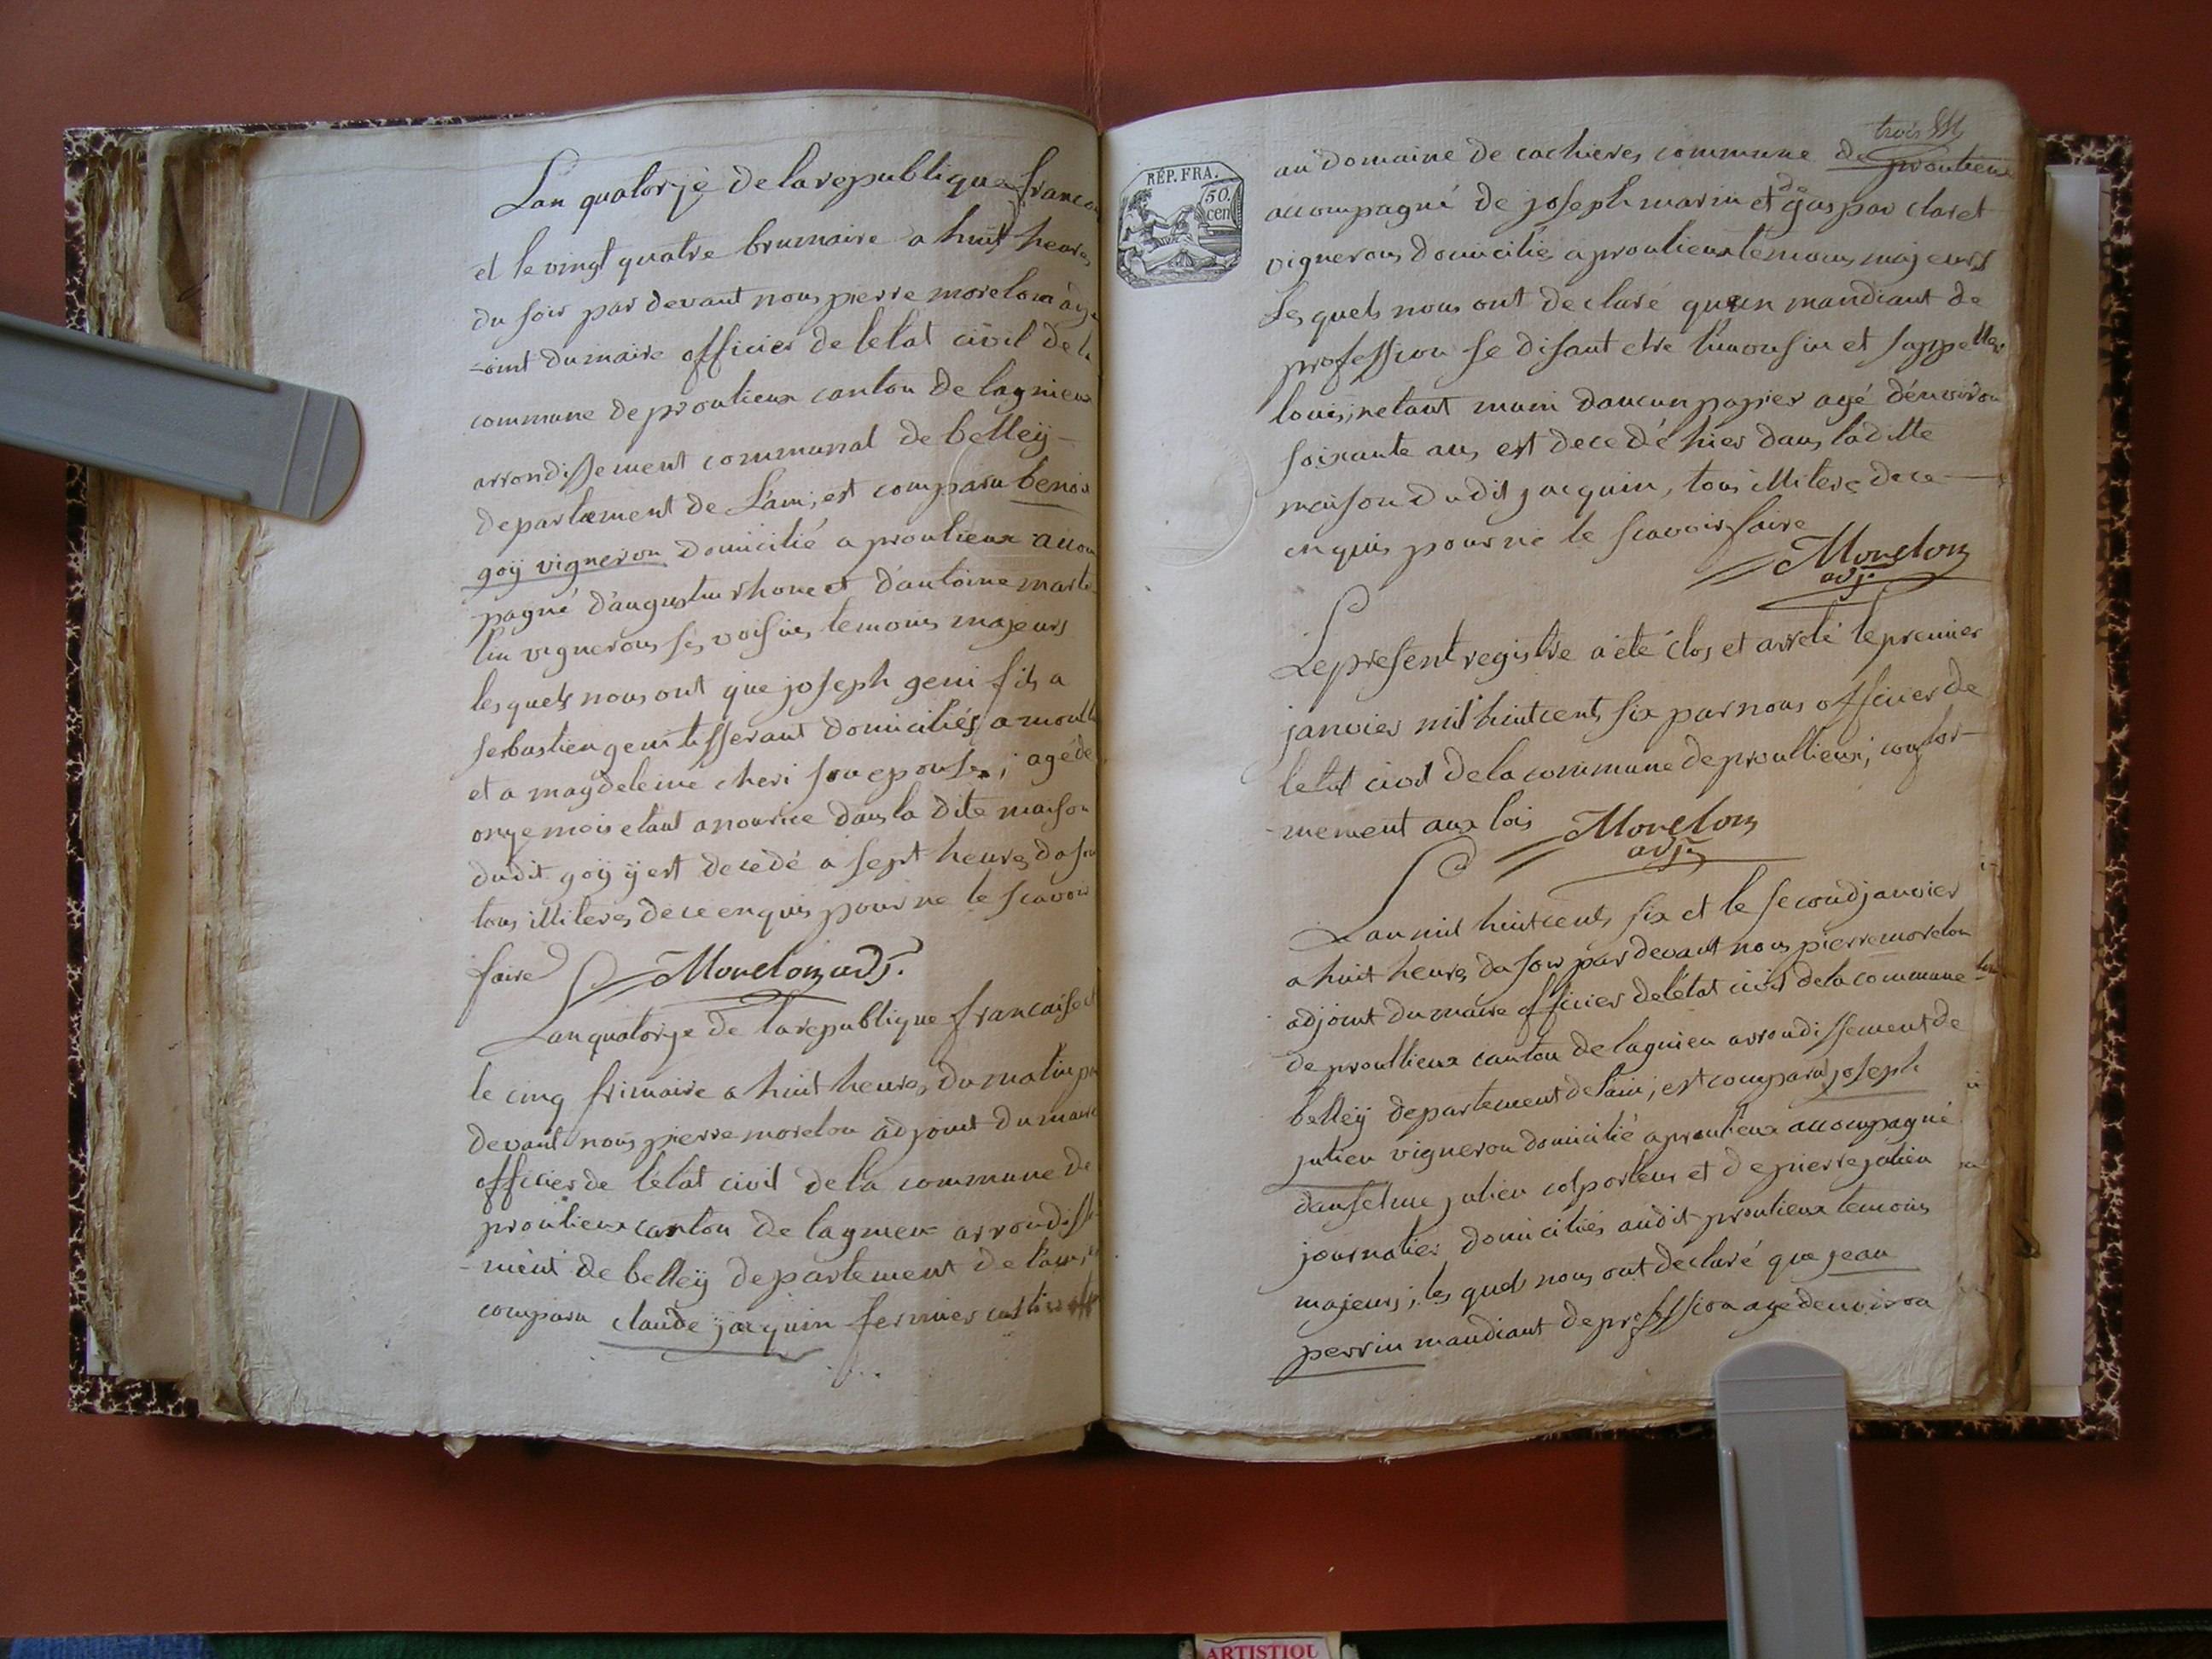 L'an quatorze de la republique francai
et le vingt quatre brumaire a huit heures
du soir par devant nous pierre morelon adj
-oint du maire officier de letat civil de la
commune de proulieux canton de lagnieux
arrondissement communal de belleÿ
departement de L'ain, est comparu benoi
goÿ vigneron domicilié a proulieux accom
pagné d'augustin rhone et d'antoine marte
lin vignerons ses voisins temoins majeurs
les quels nous ont que joseph geni fils a
sebastien geni tisserant domiciliés a
et a magdeleine cheri son epouse, agé de
onze mois etant a nourice dans la dite maison
dudit goÿ ÿ est decedé a sept heures du soir
tous illiteres de ce enquis pour ne le scavoir
faire Morelon adj.
Lan quatorze de la republique francaise et
le cinq frimaire a huit heures du matin par
devant nous pierre morelon adjoint du maire
officier de l'état civil de la commune de
proulieux canton de lagnieu arrondisse
-ment de belleÿ departement de l'ain, est
comparu claude jacquin fermier
trois
REP. FRA.
50.
cen
au domaine de cachieres commune de proulieux
accompagné de joseph marin et de gaspar claret
vignerons domiciliés a proulieux temoins majeurs
Les quels nous ont declaré qu'un mandiant de
profession se disant etre limousin et sappeller
louis, netant muni daucun papier agé d'environ
soixante ans est decedé hier dans la ditte
maison du dit jacquin, tous illiteres de ce
enquis pour ne le scavoir faire
Morelon
adj.
Le present registre a été clos et arreté le premier
janvier mil huit cents six par nous officier de
letat civil de la commune de proullieux, confor-
-mement aux lois Morelon
adj.
Lan mil huit cents six et le second janvier
a huit heures du soir par devant nous pierre morelon
adjoint du maire officier de l'état civil de la commune
de proullieux canton de lagnieu arrondissement de
belleÿ departement de l'ain, est comparu joseph
julien vigneron domicilié a proulieux accompagné
danselme julien colporteur et de pierre julien
journalier domiciliés audit proulieux temoins
majeurs, les quels nous ont declaré que jean
perrin mandiant de profession age denviron
ARTISTIQU